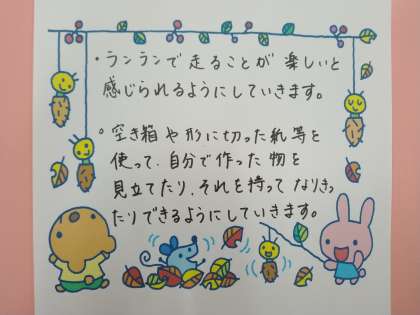 ・ランランで走ることが楽しいと
感じられるようにしていきます。
・空き箱や形に切った紙等を
使って、自分で作った物を
見立てたり、それを持ってなりきっ
たりできるようにしていきます。